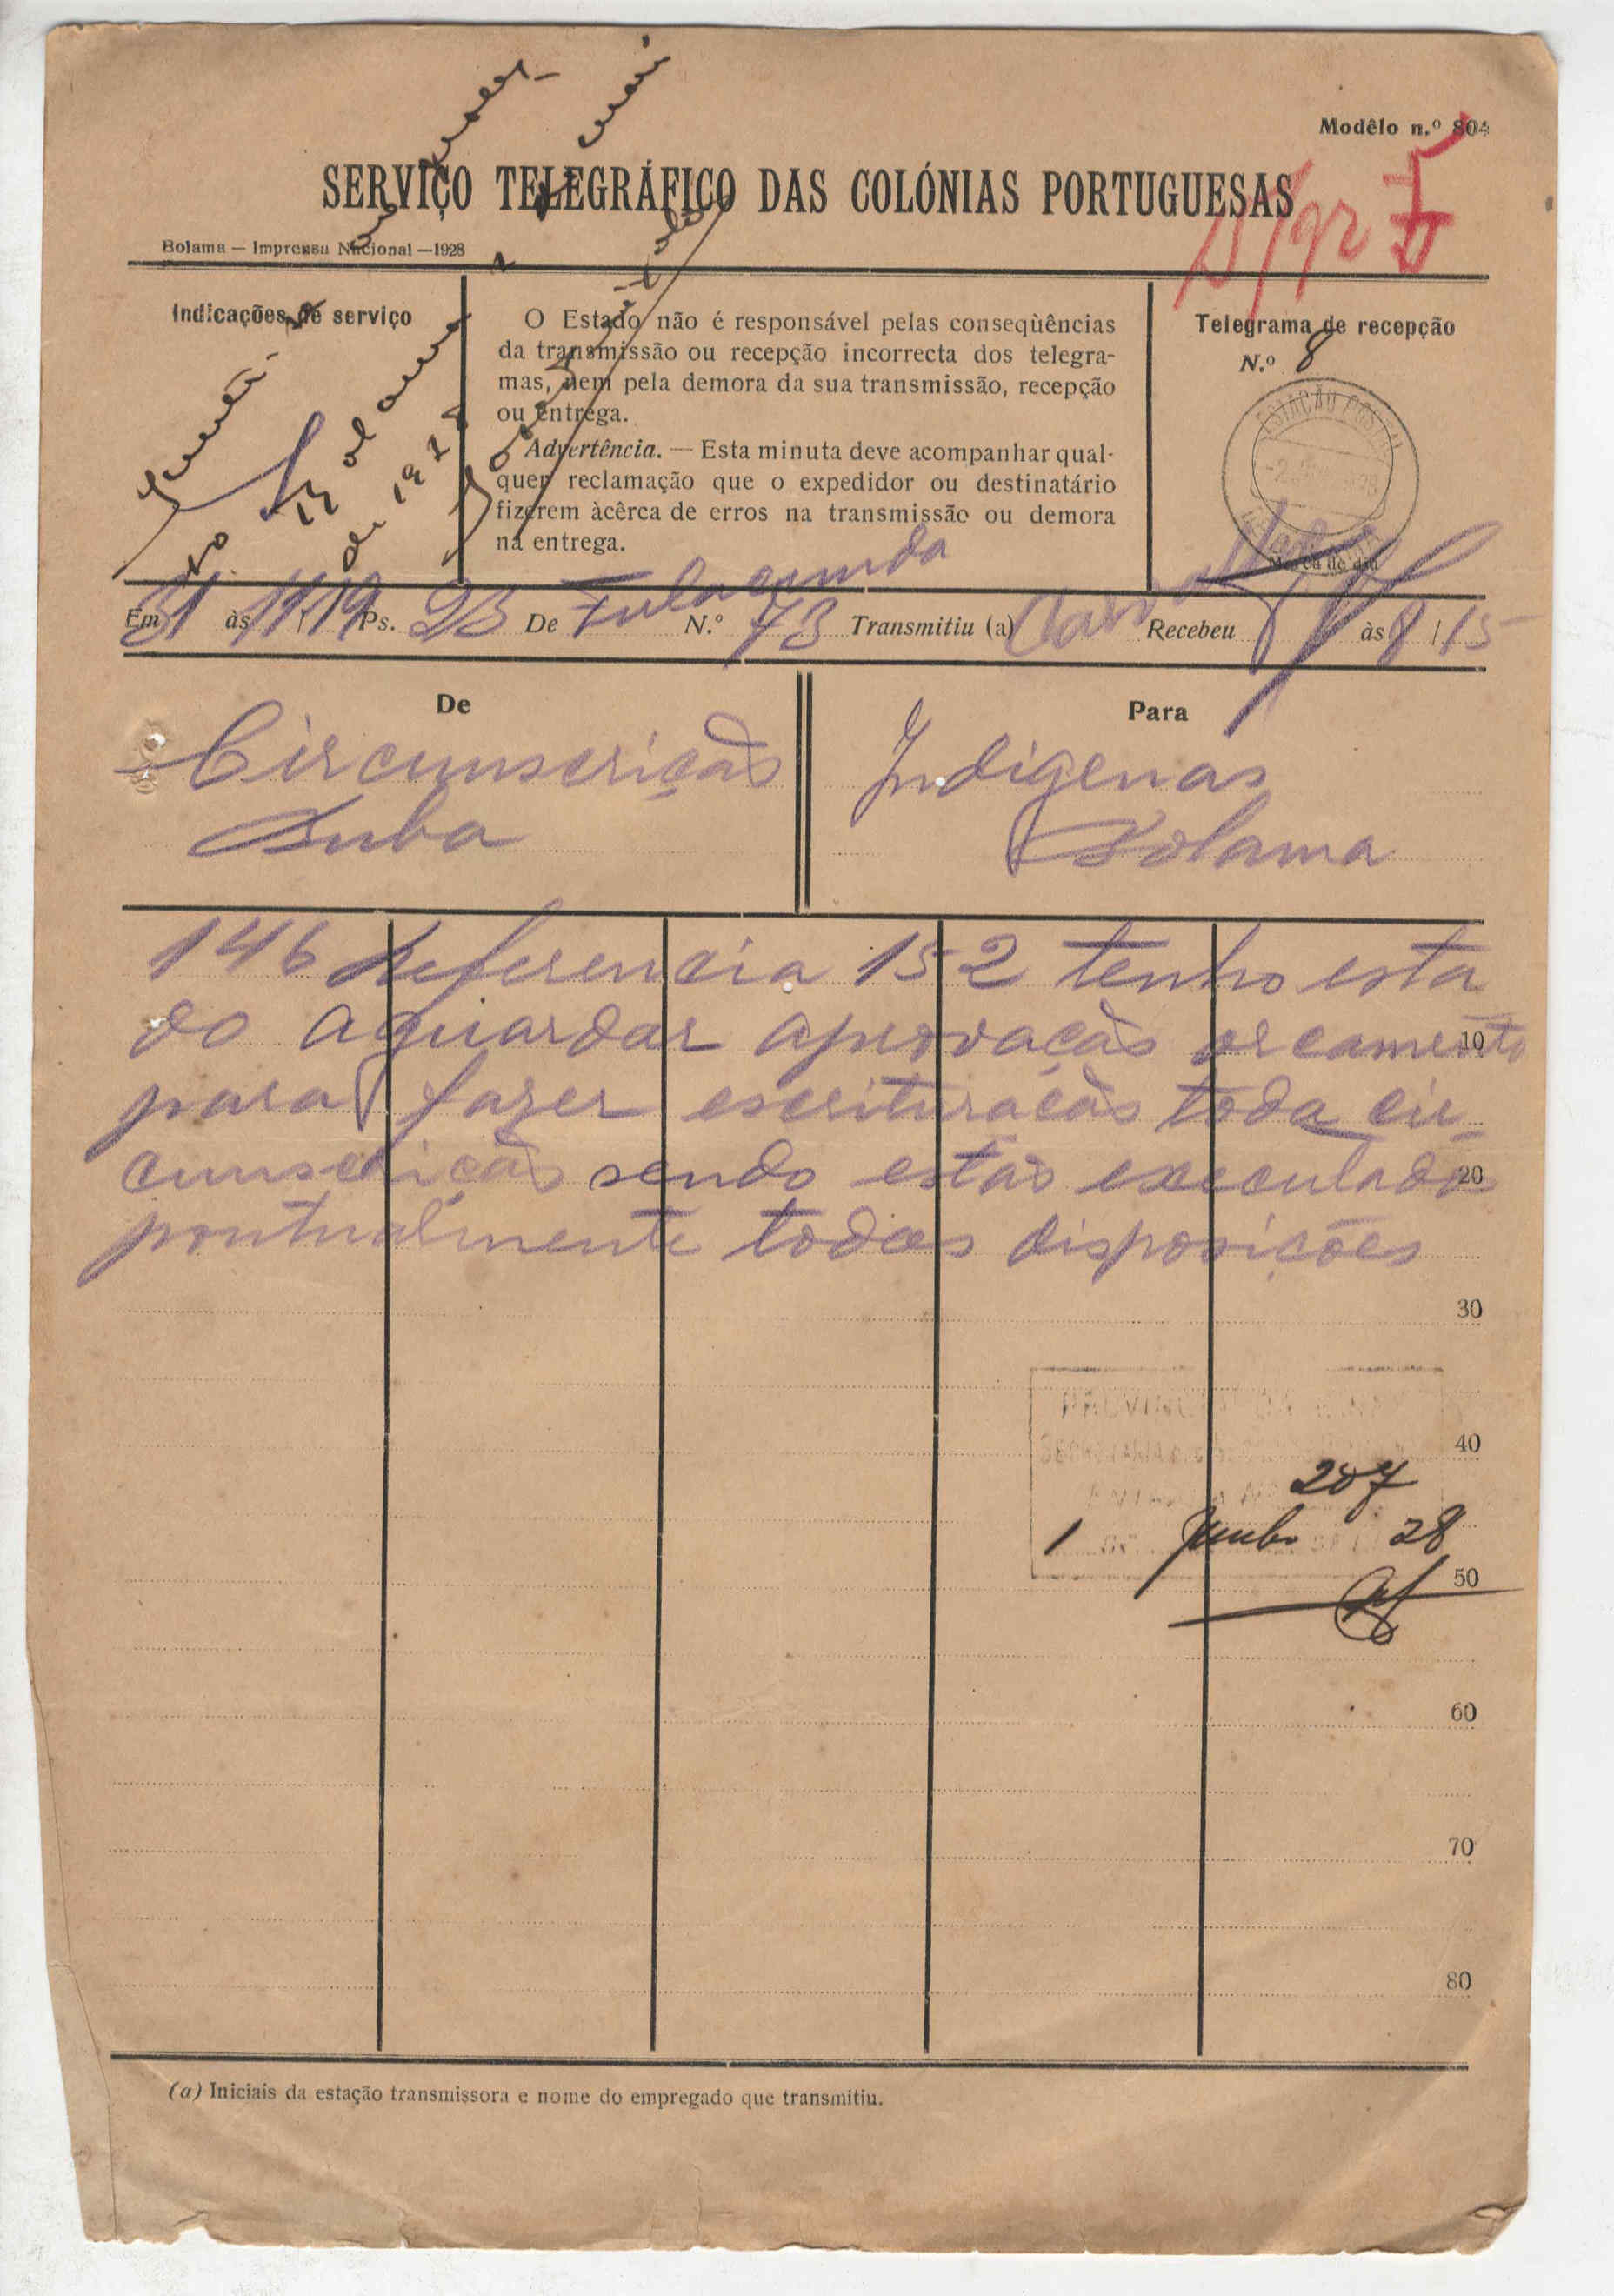 Modêlo n.º 804
SERVIÇO TELEGRÁFICO DAS COLÓNIAS PORTUGUESAS
Bolama — Imprensa Nacional — 1928
Indicações de serviço
O Estado não é responsável pelas conseqùências
da transmissão ou recepção incorrecta dos telegra-
mas, nem pela demora da sua transmissão, recepção
ou entrega.
Advertência. — Esta minuta deve acompanhar qual-
quer reclamação que o expedidor ou destinatário
fizerem àcêrca de erros na transmissão ou demora
na entrega.
Telegrama de recepção
N.º 8
ESTAÇÃO POSTAL
Marca de dia
de 1928
Em 31 às 11/19 Ps. 23 De Fulacunda N.º 73 Transmitiu (a) Recebeu às 8/15
De
Circunscrição
Buba
Para
Indigenas
Bolama
146 Referencia 152 tenho esta
do aguardar aprovação orcamento
10
para fazer escrituração toda cir-
cunscrição sendo estão executado
20
pontualmente todas disposições
30
40
207
1 Junho 28
50
60
70
80
(a) Iniciais da estação transmissora e nome do empregado que transmitiu.